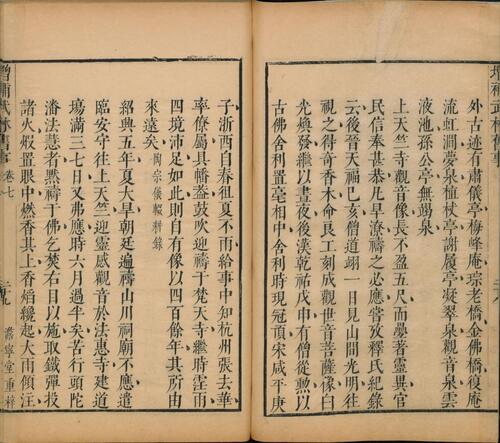 增補武林舊事
外古迹有肅儀亭梅峰庵琮老橋金佛橋復庵
流虹澗夢泉植杖亭謝履亭凝翠泉觀音泉雲
液池孫公亭無竭泉
上天竺寺觀音像長不盈五尺而夢著靈異官
民信奉甚恭凡旱潦禱之必應嘗攷釋氏紀錄
云後晉天福己亥僧道翊一日見山間光明往
視之得奇香木命良工刻成觀世音菩薩像白
光煥發繼以晝夜後漢乾祐戊申有僧從勲以
古佛舍利置毫相中舍利時現冠頂宋咸平庚
子浙西自春徂夏不雨給事中知杭州張去華
率僚屬具幡葢鼓吹迎禱于梵天寺繼時霔雨
四境沛足如此則自有像以四百餘年其所由
來遠矣 陶宗儀輟耕錄
紹興五年夏大旱朝廷遍禱山川祠廟不應遣
臨安守往上天竺迎靈感觀音於法惠寺建道
場滿三七日又弗應時六月過半矣苦行頭陀
潘法慧者黙禱于佛乞焚右目以施取鐵彈投
諸火煅置眼中燃香其上香熖緩起大雨傾注
增補武林舊事 卷七
嘉寧堂重梓